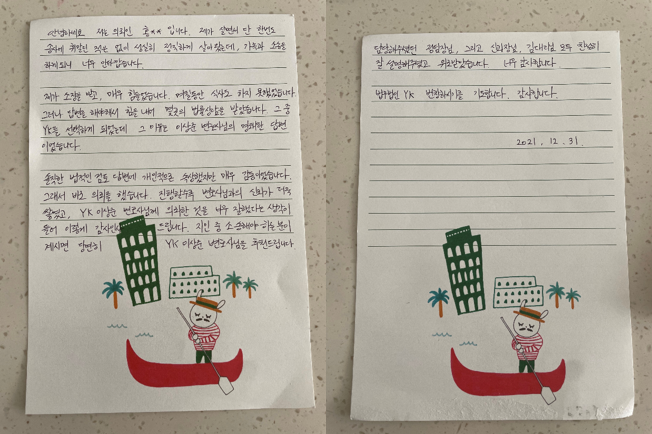 안녕하세요 저는 의뢰인 홍** 입니다. 제가 살면서 단 한번도
송사에 휘말린 적은 없이 성실히 정직하게 살아왔는데, 가족과 소송을
하게되니 너무 안타깝습니다.
제가 소장을 받고, 매우 힘들었습니다. 며칠동안 식사도 하지 못했었습니다
그러나 답변을 해야해서 힘을 내서 몇곳의 법률상담을 받았습니다. 그 중
YK를 선택하게 되었는데 그 이유는 이상순 변호사님의 명쾌한 답변
이었습니다.
솔직한 법적인 검토 답변에 개인적으론 속상했지만 매우 감동이었습니다.
그래서 바로 의뢰를 했습니다. 진행할수록 변호사님과의 신뢰가 더욱
쌓였고, YK 이상순 변호사님께 의뢰한 것은 너무 잘했다는 생각이
들어 이렇게 감사인사 드립니다. 지인 중 소송해야 하는 분이
계시면 당연히 YK 이상순 변호사님을 추천드립니다.
담당해주셨던 권팀장님, 그리고 신과장님, 김대리님 모두 친절히
잘 설명해주셨고 위로받았습니다 너무 감사합니다.
법무법인 YK 번창하시기를 기도합니다. 감사합니다.
2021. 12. 31.